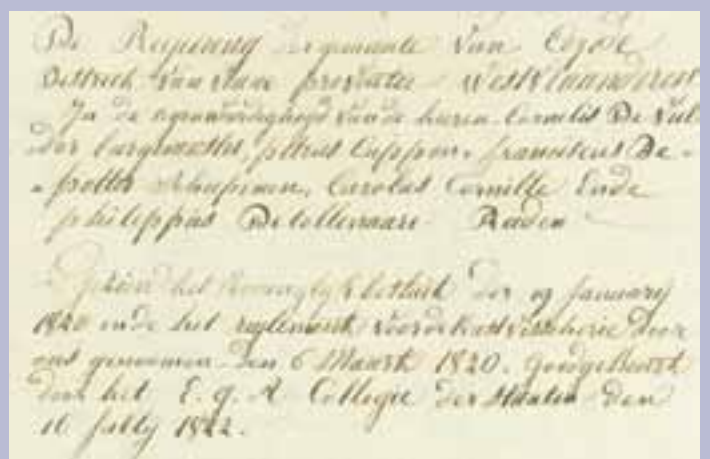 De Regering der gemeente van Coxide
District van Veurne provintie Westvlaanderen
In de egenwoordigheyd van de heeren Cornelis De
der burgmeester, pitrus Cappon, franciscus De-
potter Schepenen, Carolus Cornille Ende
philippus Detollenaare Raden
Gezien het Koninglyk besluit der 19 January
1820 ende het reglement voor de Kustvisscherie door
ons genomen den 6 Maart 1820. goedgekeurt
door het E. g. A. Collegie der Staaten den
16 July 1822.